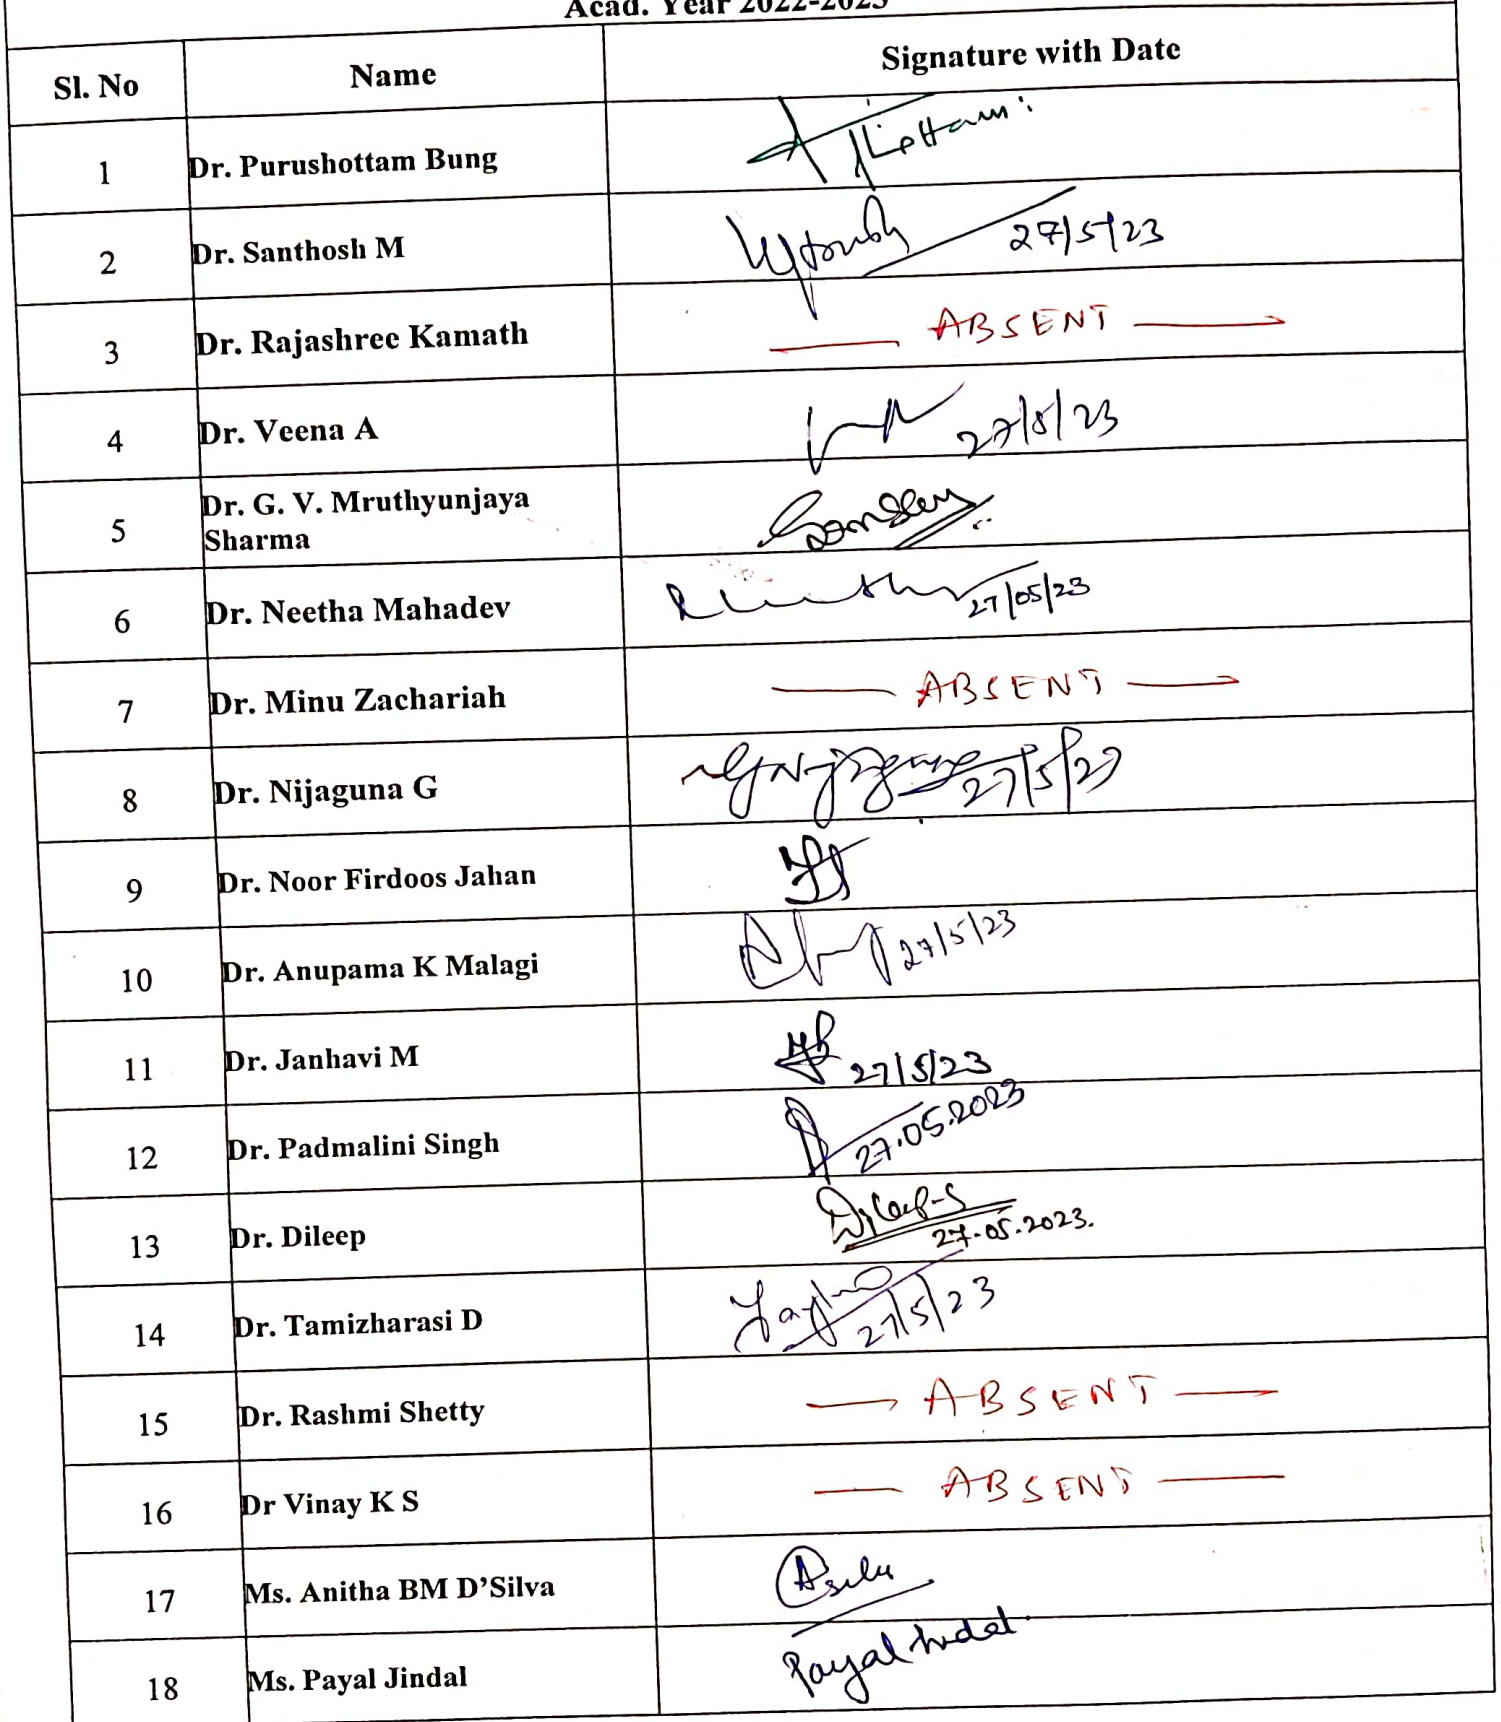 Acad. Year 2022-2023
Sl. No Name Signature with Date
1 Dr. Purushottam Bung
2 Dr. Santhosh M 27/5/23
3 Dr. Rajashree Kamath ABSENT
4 Dr. Veena A 27/5/23
5 Dr. G. V. Mruthyunjaya
Sharma
6 Dr. Neetha Mahadev 27/05/23
7 Dr. Minu Zachariah ABSENT
8 Dr. Nijaguna G 27/5/23
9 Dr. Noor Firdoos Jahan
10 Dr. Anupama K Malagi 27/5/23
11 Dr. Janhavi M 27/5/23
12 Dr. Padmalini Singh 27.05.2023
13 Dr. Dileep Dileep-S
27.05.2023.
14 Dr. Tamizharasi D 27/5/23
15 Dr. Rashmi Shetty ABSENT
16 Dr Vinay K S ABSENT
17 Ms. Anitha BM D’Silva
18 Ms. Payal Jindal Payal Jindal